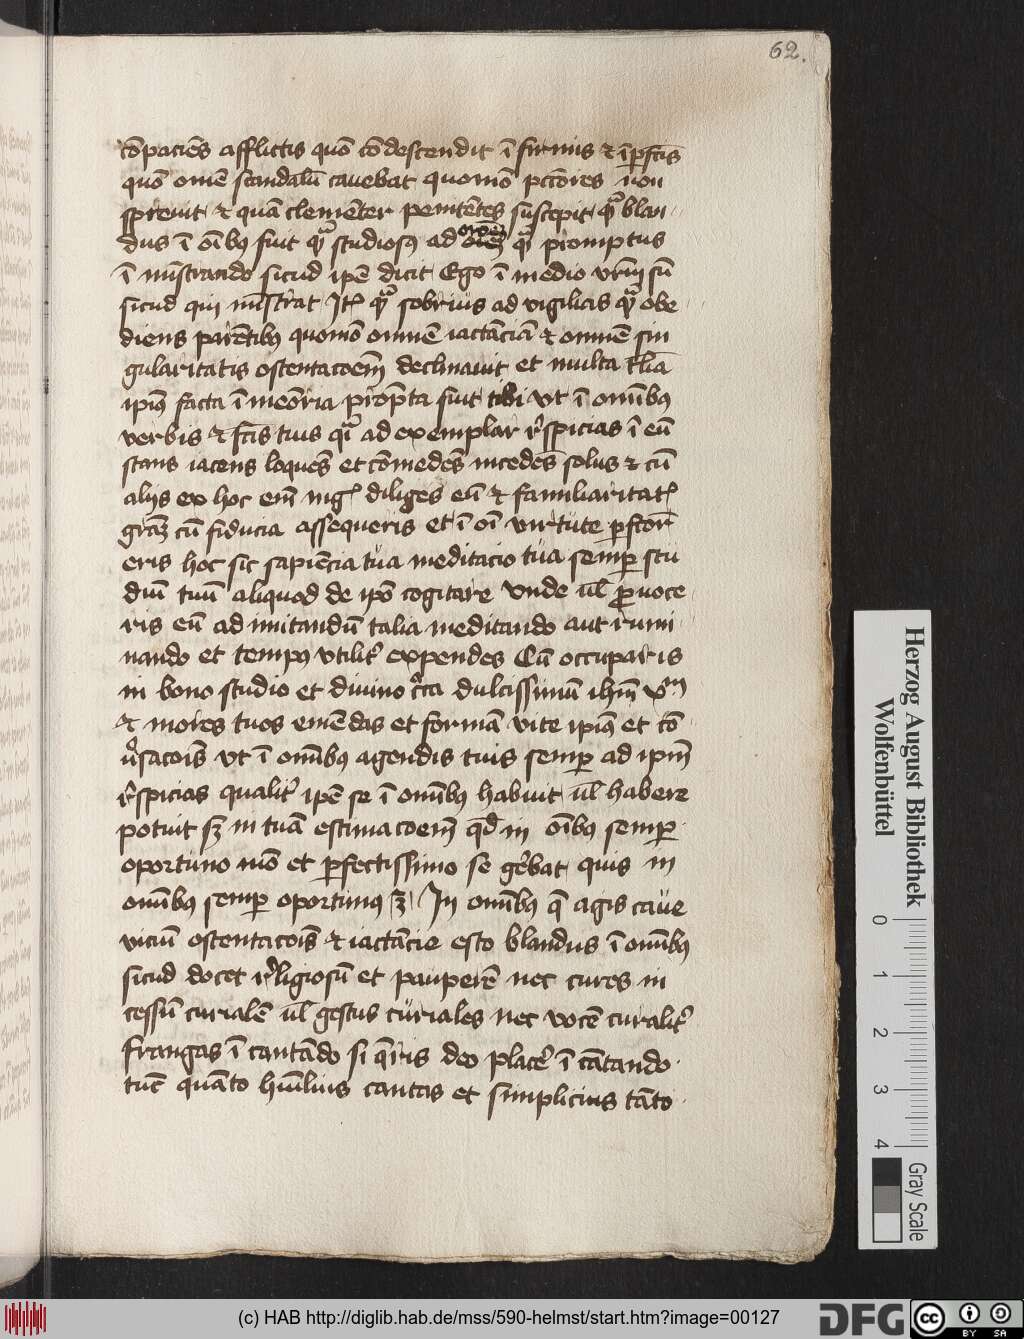 62.
cōpaciēs afflictis quō cōdescendit ī firmis ⁊ īp̄fcīs
quō omē scandalū cavebat quomō pctōres non
sprevit ⁊ quā clemēter penitētes suscepit qͣ blan
dus ī oībꝰ fuit qͣ studiosꝰ ad qͣ promptus
ī mīstrando sicud ipē dicit Ego ī medio vr̄m sū
sicud qui mīstrat Itē qͣ sobrius ad vigilias qͣ obe
diens parētibꝰ quomō omnē iactāciā ⁊ omnē sin
gularitatis ostentacoem̄ declinavit et multa t̄lia
ipiꝰ facta ī meōria prop̄ta sint tibi vt ī om̄ibꝰ
verbis ⁊ fc̄is tuis qͣ ad exemplar r̄spicias ī eū
stans iacens loquēs et cōmedēs incedēs solus ⁊ cū
alijs ex hoc em̄ mgꝭ diliges eū ⁊ familiaritatꝭ
grāꝫ cū fiducia assequeris et ī oī virtute ꝑfctōr
eris hoc sic sapiēcia tua meditacio tua semꝑ stu
diū tuū aliquod de ipō cogitare vnde ul̄ ꝓuoce
ris eū ad imitandū talia meditando aut rumi
nando et tempꝰ vtilitꝰ expendes Cū occuparis
in bono studio et divino c̄ca dulcissimū ihm̄ xp̄m
⁊ mores tuos emēdas et formā vite ipiꝰ et cō
ūsacois̄ vt ī om̄ibꝰ agendis tuis semꝑ ad ipm̄
r̄spicias qualitꝰ ipē se ī om̄ibꝰ habuit ul̄ habere
potuit sꝫ in tuā estimacoem̄ qd̄ in oībꝰ semꝑ
oportuno mō et ꝑfectissimo se gēbat quis in
om̄ibꝰ semꝑ oportunꝰ In om̄ibꝰ q̄ agis cave
viciū ostentacois̄ ⁊ iactācie esto blandus ī om̄ibꝰ
sicud docet r̄ligiosū et pauperē nec cures in
cessū curialē ul̄ gestus curiales nec vocē curalitꝰ
frangas ī cantādo si q̄ris deo placē ī cātando
tūc quāto hūlius cantas et simplicius tāto
Herzog August Bibliothek
Wolfenbüttel
0 1 2 3 4
Gray Scale
(c) HAB http://diglib.hab.de/mss/590-helmst/start.htm?image=00127
DFG
cc BY SA